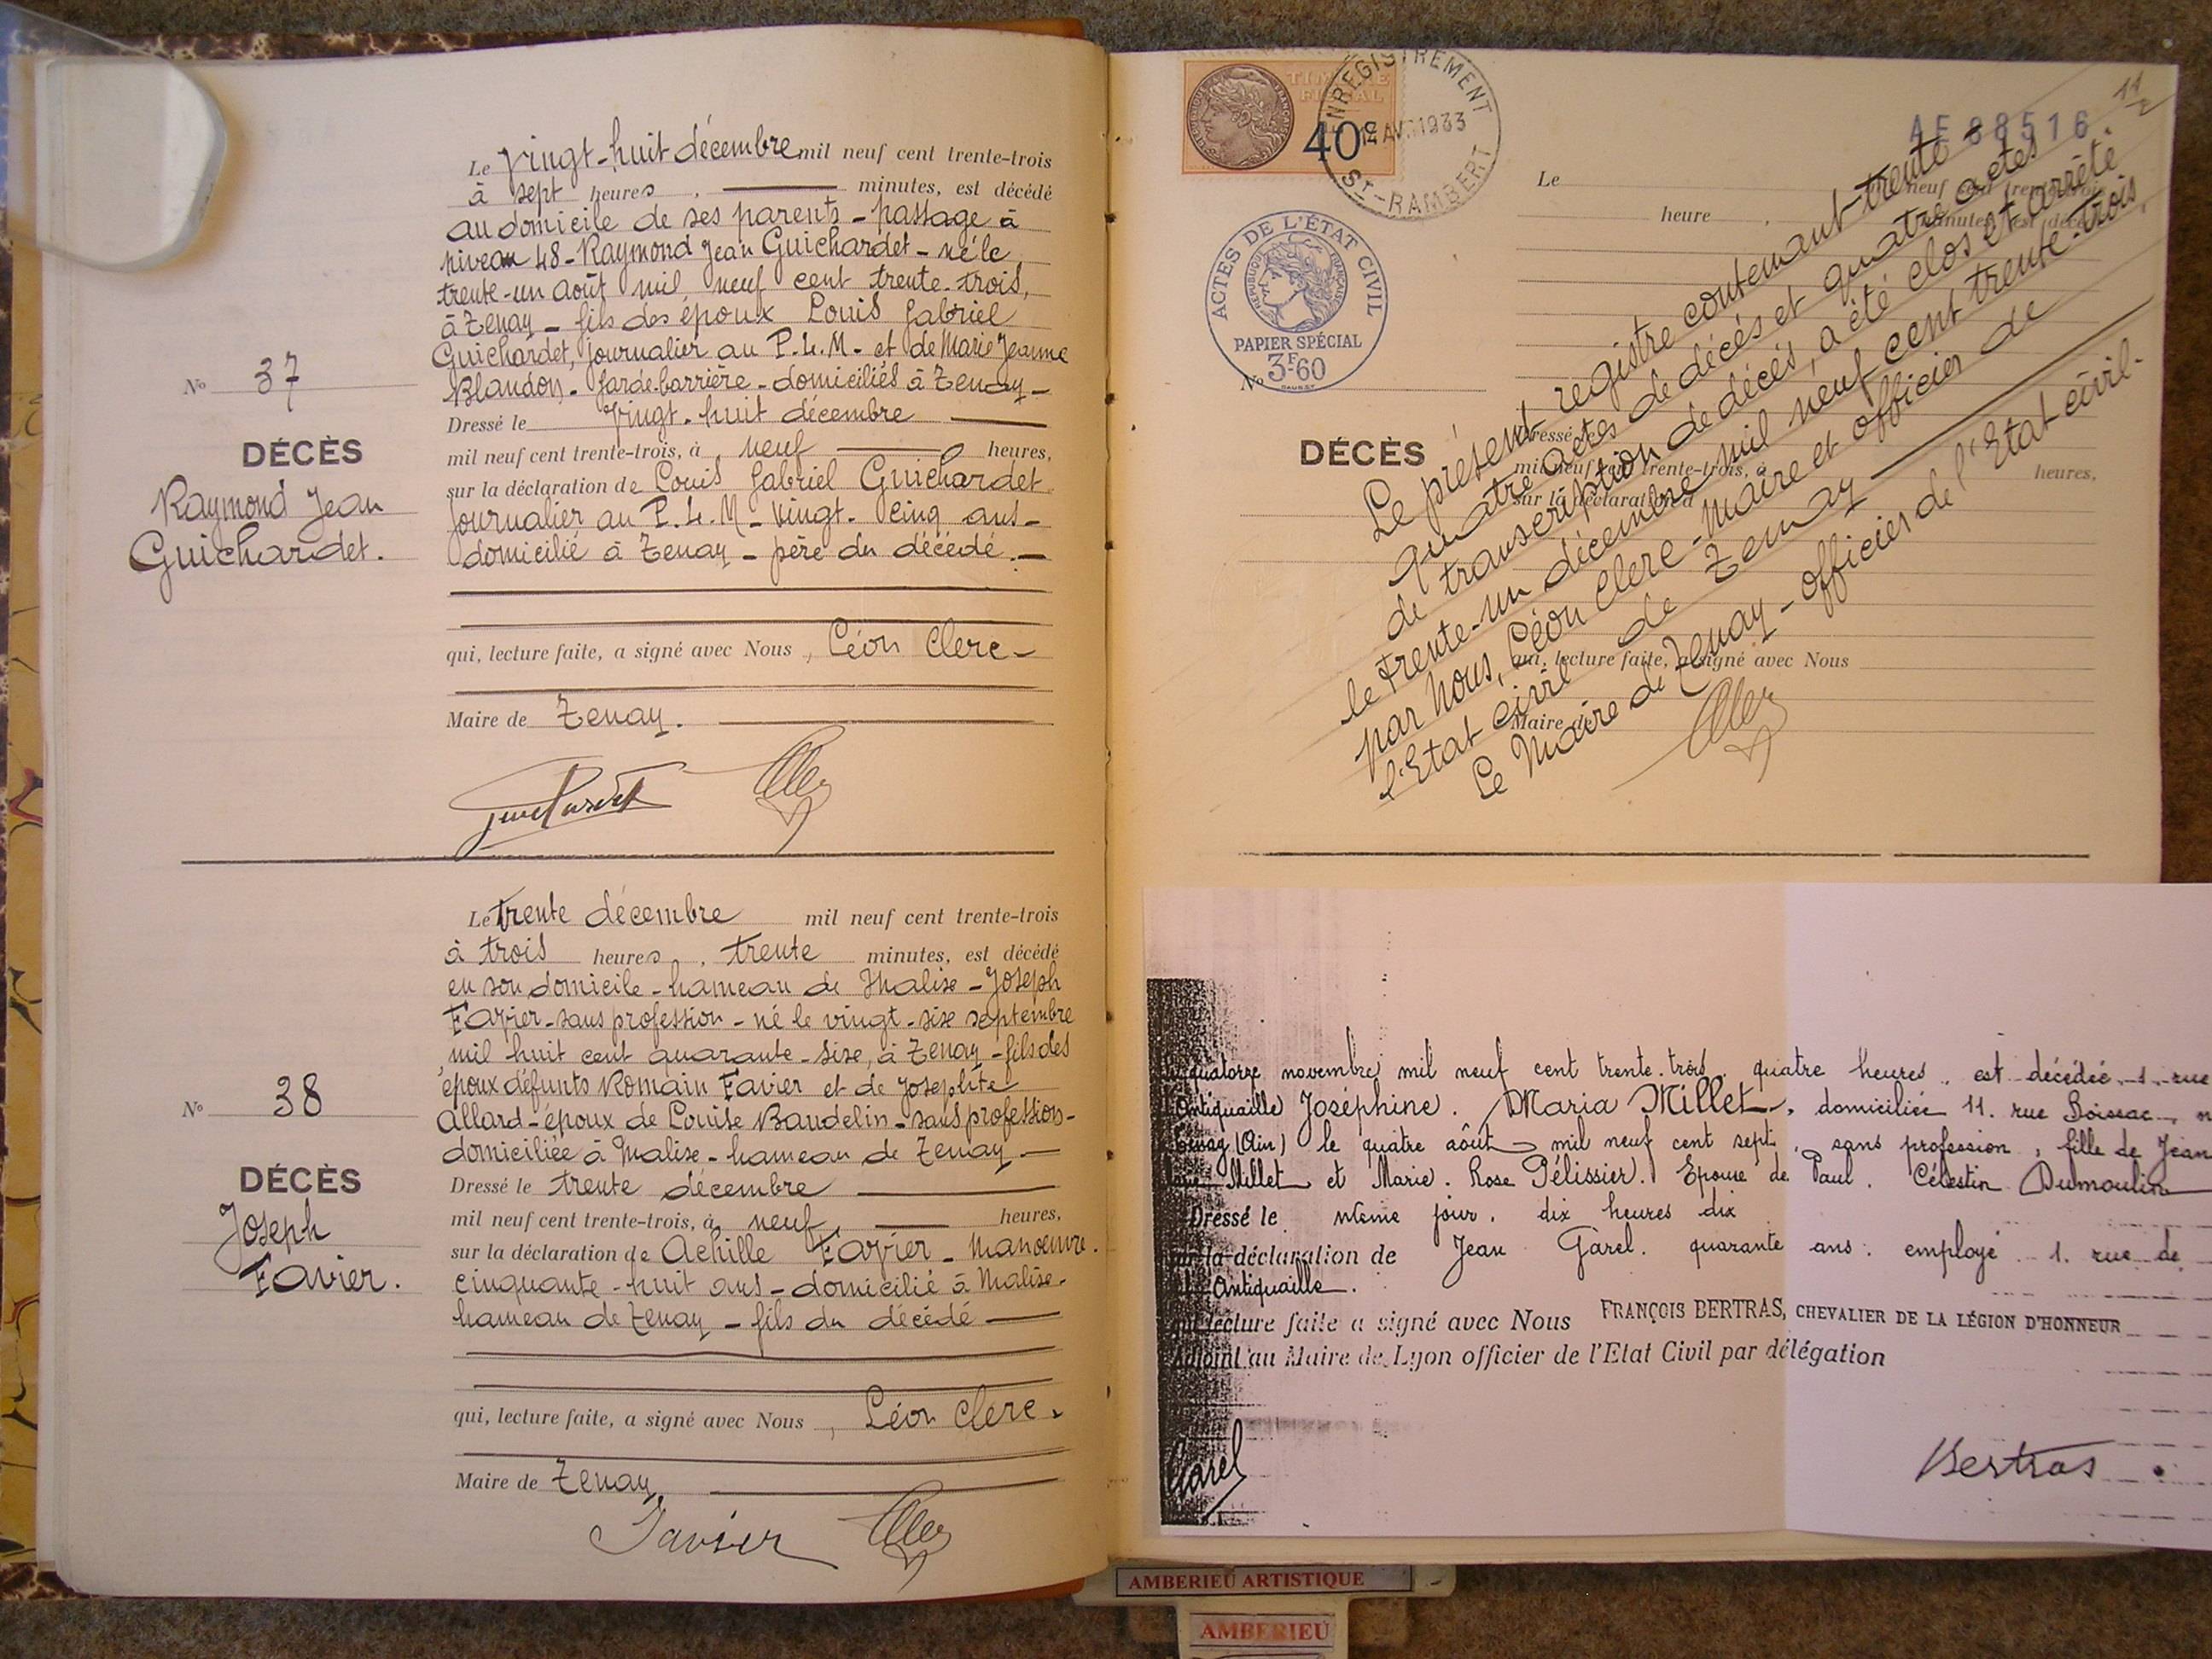 Le Vingt-huit décembre mil neuf cent trente-trois
à sept heures, minutes, est décédé
au domicile de ses parents - passage à
niveau 48 - Raymond Jean Guichardet - né le
trente-un août mil neuf cent trente-trois,
à Tenay - fils des époux Louis Gabriel
Guichardet, journalier au P.L.M. et de Marie Jeanne
Blandon - Garde-barrière - domiciliés à Tenay -
Dressé le Vingt-huit décembre
mil neuf cent trente-trois, à neuf heures,
sur la déclaration de Louis Gabriel Guichardet
Journalier au P.L.M - vingt-cinq ans -
domicilié à Tenay - père du décédé. -
qui, lecture faite, a signé avec Nous, Léon Clerc -
Maire de Tenay.
No 37
DÉCÈS
Raymond Jean
Guichardet.
Le trente décembre mil neuf cent trente-trois
à trois heures, trente minutes, est décédé
en son domicile - hameau de Malix - Joseph
Favier - sans profession - né le vingt-six septembre
mil huit cent quarante-six, à Tenay - fils des
époux défunts Romain Favier et de Josephte
Allard - époux de Louise Baudelin - sans profession -
domiciliée à Malix - hameau de Tenay -
Dressé le trente décembre
mil neuf cent trente-trois, à neuf, heures,
sur la déclaration de Achille Favier - manoeuvre.
cinquante-huit ans - domicilié à Malix -
hameau de Tenay - fils du décédé
qui, lecture faite, a signé avec Nous, Léon Clerc.
Maire de Tenay
Favier
No 38
DÉCÈS
Joseph
Favier.
TIMBRE
FISCAL
40c
ENREGISTREMENT
1933
St-RAMBERT
ACTES DE L'ÉTAT CIVIL
RÉPUBLIQUE FRANÇAISE
PAPIER SPÉCIAL
3F60
AE 88516
Le neuf cent trente-trois
heure, minutes, est décédé
No
DÉCÈS
Dressé le
mil neuf cent trente-trois, à heures,
sur la déclaration d
qui, lecture faite, a signé avec Nous
Maire de
Le présent registre contenant trente-
quatre actes de décès et quatre actes
de transcription de décès, a été clos et arrêté
le trente-un décembre mil neuf cent trente-trois
par Nous, Léon Clerc - Maire et officier de
l'Etat civil de Tenay
Le Maire de Tenay - officier de l'Etat civil -
quatorze novembre mil neuf cent trente-trois, quatre heures, est décédée, 1, rue
Antiquaille Joséphine. Maria Millet, domiciliée 11. rue Boissac, n
Tenay (Ain) le quatre août mil neuf cent sept, sans profession, fille de Jean
Millet et Marie. Rose Pélissier. Epouse de Paul. Célestin Dumoulin
Dressé le même jour, dix heures dix
la déclaration de Jean Garel. quarante ans. employé 1. rue de
l'Antiquaille.
lecture faite a signé avec Nous FRANÇOIS BERTRAS, CHEVALIER DE LA LÉGION D'HONNEUR
Adjoint au Maire de Lyon officier de l'Etat Civil par délégation
Garel
Bertras
AMBERIEU ARTISTIQUE
AMBERIEU